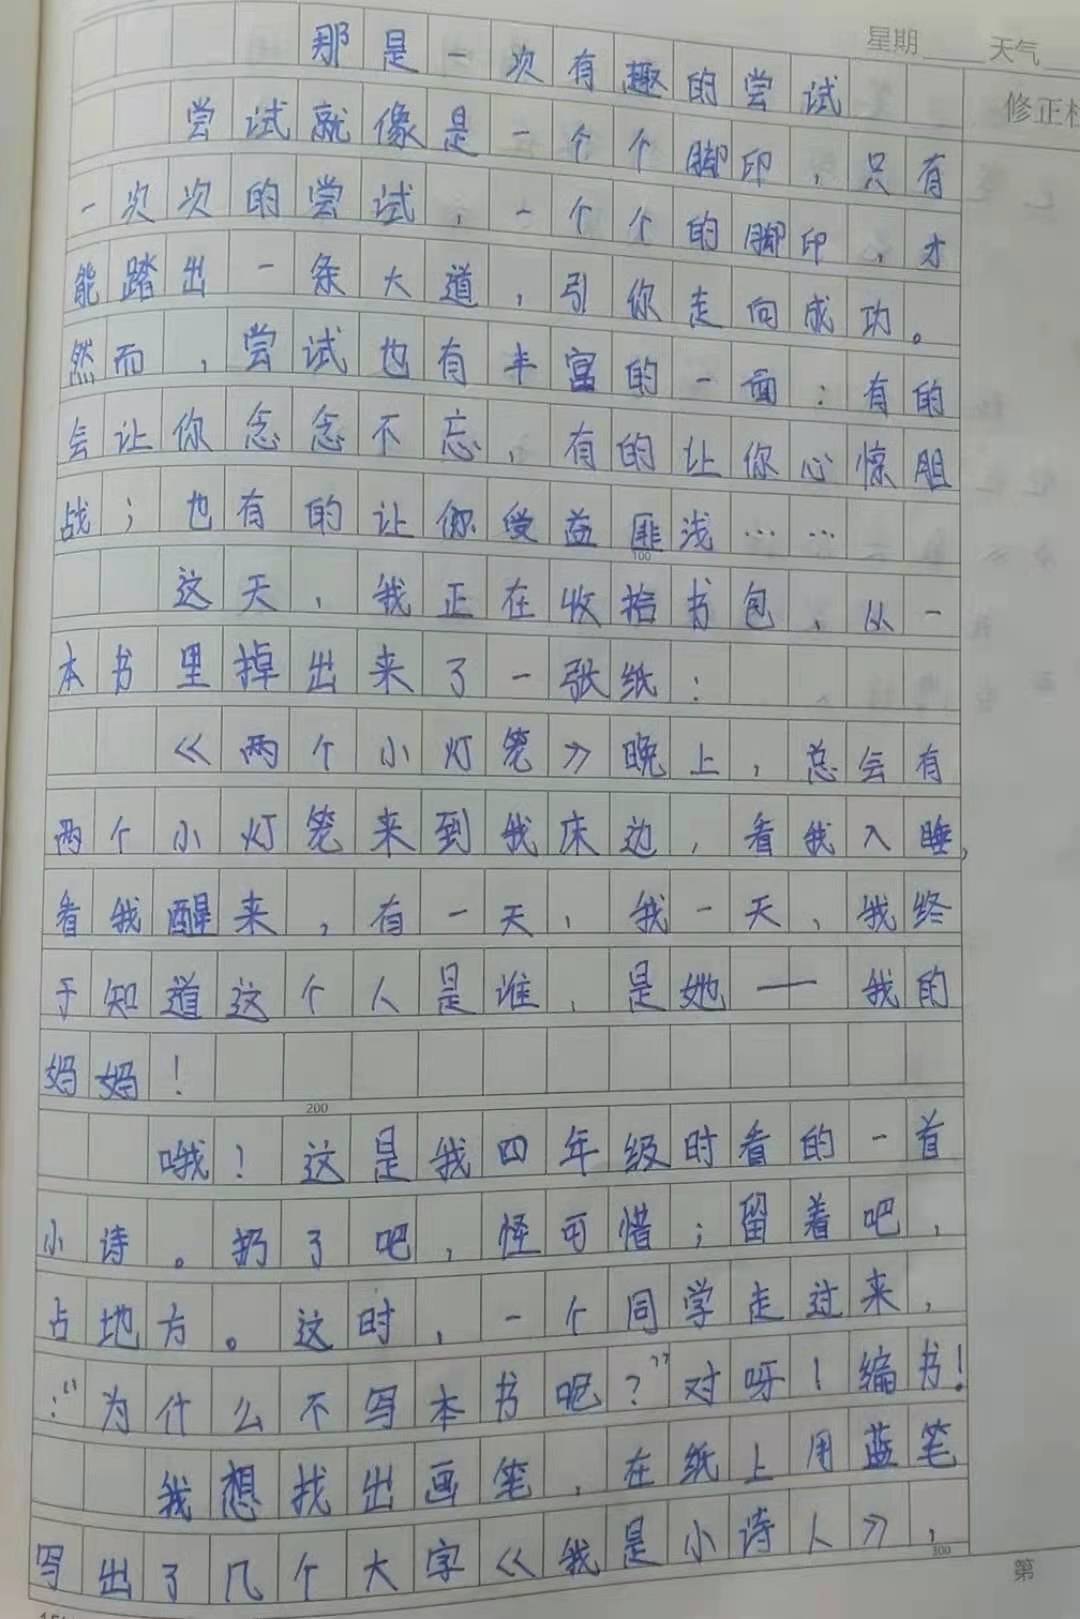 星期 天气
修正栏
那是一次有趣的尝试
尝试就像是一个个脚印，只有
一次次的尝试，一个个的脚印，才
能踏出一条大道，引你走向成功。
然而，尝试也有丰富的一面：有的
会让你念念不忘，有的让你心惊胆
战；也有的让你受益匪浅……
100
这天，我正在收拾书包，从一
本书里掉出来了一张纸：
《两个小灯笼》晚上，总会有
两个小灯笼来到我床边，看我入睡，
看我醒来，有一天，我一天，我终
于知道这个人是谁，是她——我的
妈妈！
200
哦！这是我四年级时看的一首
小诗。扔了吧，怪可惜；留着吧，
占地方。这时，一个同学走过来，
：“为什么不写本书呢？”对呀！编书！
我想找出画笔，在纸上用蓝笔
写出了几个大字《我是小诗人》，
300
第